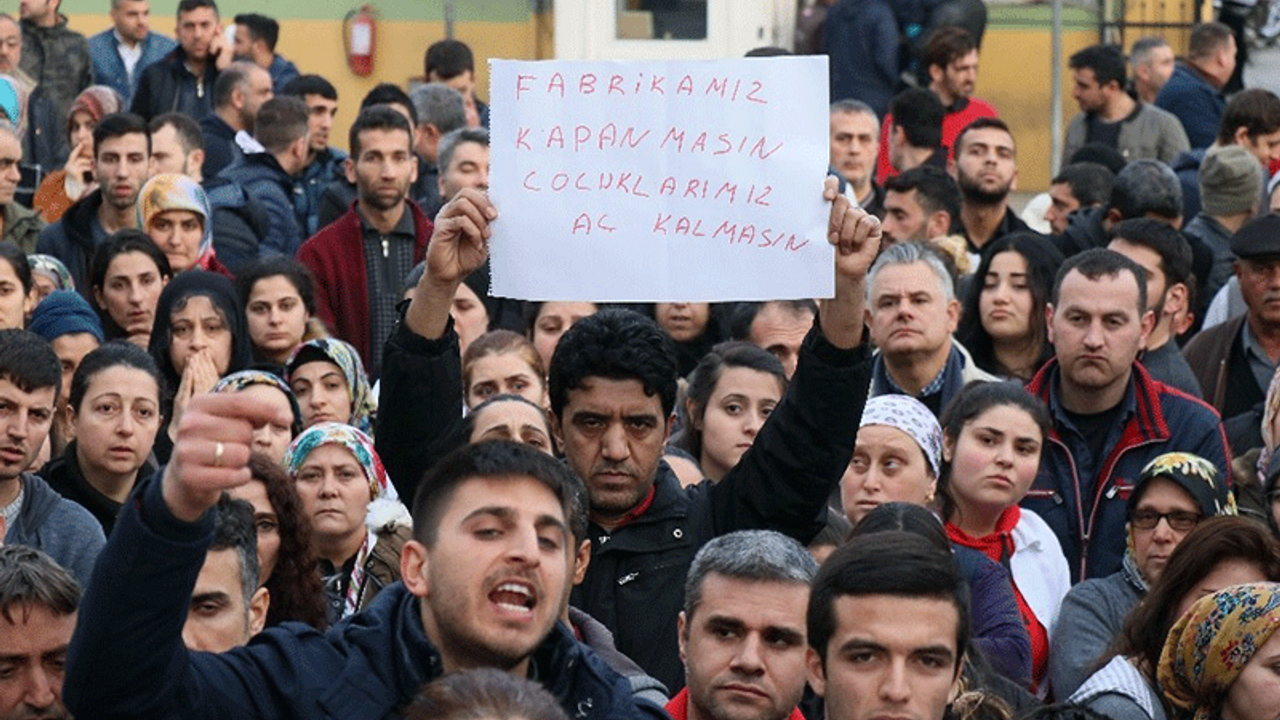 FABRİKAMIZ
KAPANMASIN
ÇOCUKLARIMIZ
AÇ KALMASIN